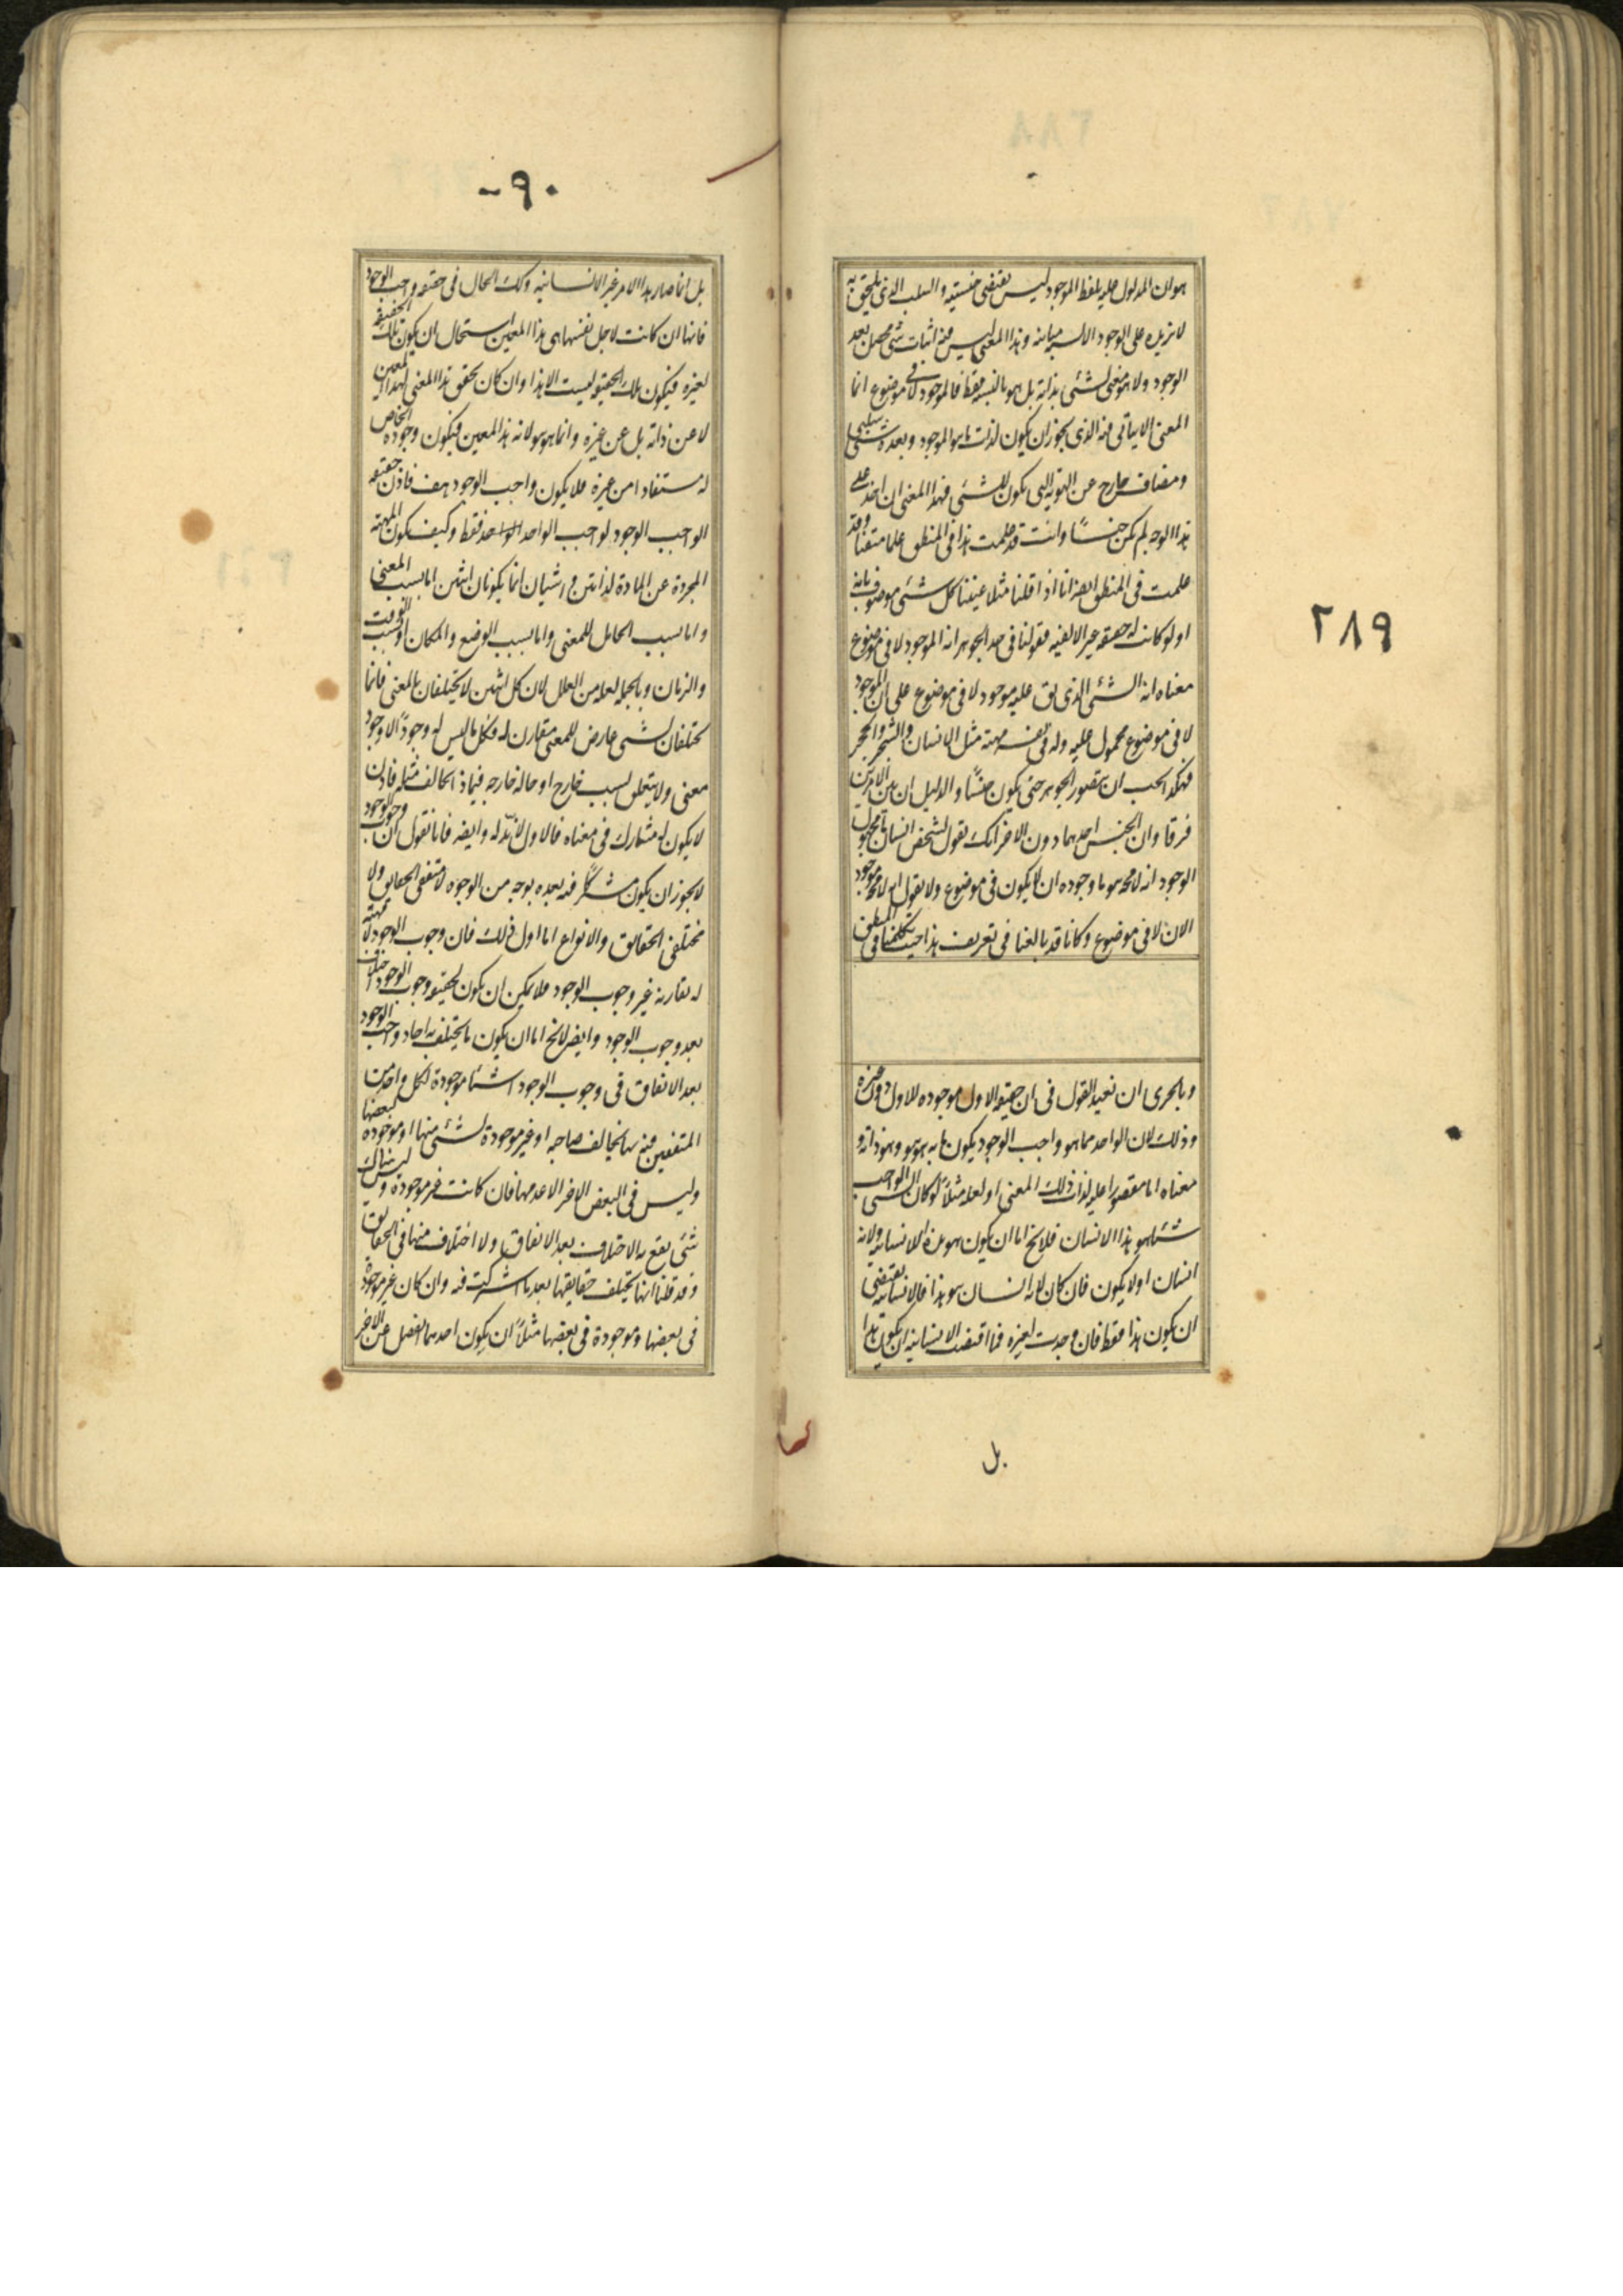 ٢٨٩
هو ان المدلول عليه بلفظ الموجود ليس يقتضى جنسيته والسلب الذى يلحق به
لا يزيده على الوجود الا نسبة مباينة وهذا المعنى ليس فيه اثبات شئ محصل بعد
الوجود ولا هو معنى لشئ بذاته بل هو بالنسبة فقط فالموجود لا فى موضوع انما
المعنى الاثباتى فيه الذى يجوز ان يكون لذات ما هو الموجود وبعده شئ سلبى
ومضاف خارج عن الهوية التى يكون للشئ فهذا المعنى ان اخذ على
هذا الوجه لم يكن جنسًا وانت قد علمت هذا فى المنطق علما متقنا وقد
علمت فى المنطق ايضا انا اذا قلنا مثلا عنينا كل شئ موصوف بانه
او لو كانت له حقيقة غير الالفية فقولنا فى حد الجوهر انه الموجود لا فى موضوع
معناه انه الشئ الذى يق عليه موجود لا فى موضوع على ان الموجود
لا فى موضوع محمول عليه وله فى نفسه مهية مثل الانسان والشجر والحجر
فهكذا يجب ان يتصور الجوهر حتى يكون جنسًا والدليل ان بين الامرين
فرقا وان الجنس احدهما دون الاخر انك تقول لشخص انسان ما مجهول
الوجود انه لا محه هو ما وجوده ان لا يكون فى موضوع ولا يقول انه لا محه موجود
الان لا فى موضوع وكانا قد بالغنا فى تعريف هذا حيث تكلمنا فى المنطق
وبالحرى ان نعيد القول فى ان حقيقة الاول موجوده للاول دون غيره
وذلك لان الواحد مما هو واجب الوجود يكون ما به هو هو وهو ذاته و
معناه اما مقصورا عليه لذات ذلك المعنى او لعله مثلاً لو كان الشئ الواجب
شئا هو هذا الانسان فلا يخ اما ان يكون هو هذا للانسانية ولانه
انسان او لا يكون فان كان لانه انسان هو هذا فالانسانية يقتضى
ان يكون هذا فقط فان وجدت لغيره فما اقتضت الانسانية ان يكون هذا
بل
٩٠
بل انما صار هذا الامر غير الانسانية وكك الحال فى حقيقة واجب الوجود
فانها ان كانت لاجل نفسها هى هذا المعين استحال ان يكون تلك الحقيقة
لغيره فيكون تلك الحقيقة ليست الا هذا وان كان تحقق هذا المعنى لهذا المعين
لا عن ذاته بل عن غيره وانما هو هو لانه هذا المعين فيكون وجوده الخاص
له مستفادا من غيره فلا يكون واجب الوجود هف فاذن حقيقة
الواجب الوجود لواجب الواحد فقط وكيف يكون المهية
المجردة عن المادة لذاتين و الشيان انما يكونان اثنين اما بسبب المعنى
واما بسبب الحامل للمعنى واما بسبب الوضع والمكان او بسبب الوقت
والزمان وبالجملة لعلة من العلل لان كل اثنين لا يختلفان بالمعنى فانما
يختلفان لشئ عارض للمعنى مقارن له فكل ما ليس له وجود الا وجود
معنى ولا يتعلق بسبب خارج او حالة خارجة فبماذا يخالف مثله فاذن
لا يكون له مشارك فى معناه فالاول لا ند له وايضا فانا نقول ان وجوب الوجود
لا يجوز ان يكون مشتركًا فيه لعدة بوجه من الوجوه لا متفقى الحقايق ولا
مختلفى الحقايق والانواع اما اول ذلك فان وجوب الوجود لا مهية
له يقارنه غير وجوب الوجود فلا يمكن ان يكون لحقيقة وجوب الوجود اختلاف
بعد وجوب الوجود وايضا لا يخ اما ان يكون ما يختلف به احاد واجب الوجود
بعد الاتفاق فى وجوب الوجود اشئا موجودة لكل واحد من
المتفقين فيه بها يخالف صاحبه او غير موجودة لشئ منها او موجوده لبعضها
وليس فى البعض الاخر الا عدمها فان كانت غير موجودة وليس هناك
شئ يقع به الاختلاف بعد الاتفاق ولا اختلاف منها فى الحقايق
وقد قلنا انها يختلف حقايقها بعد ما اشتركت فيه وان كان غير موجودة
فى بعضها وموجودة فى بعضها مثلاً ان يكون احدهما انفصل عن الاخر